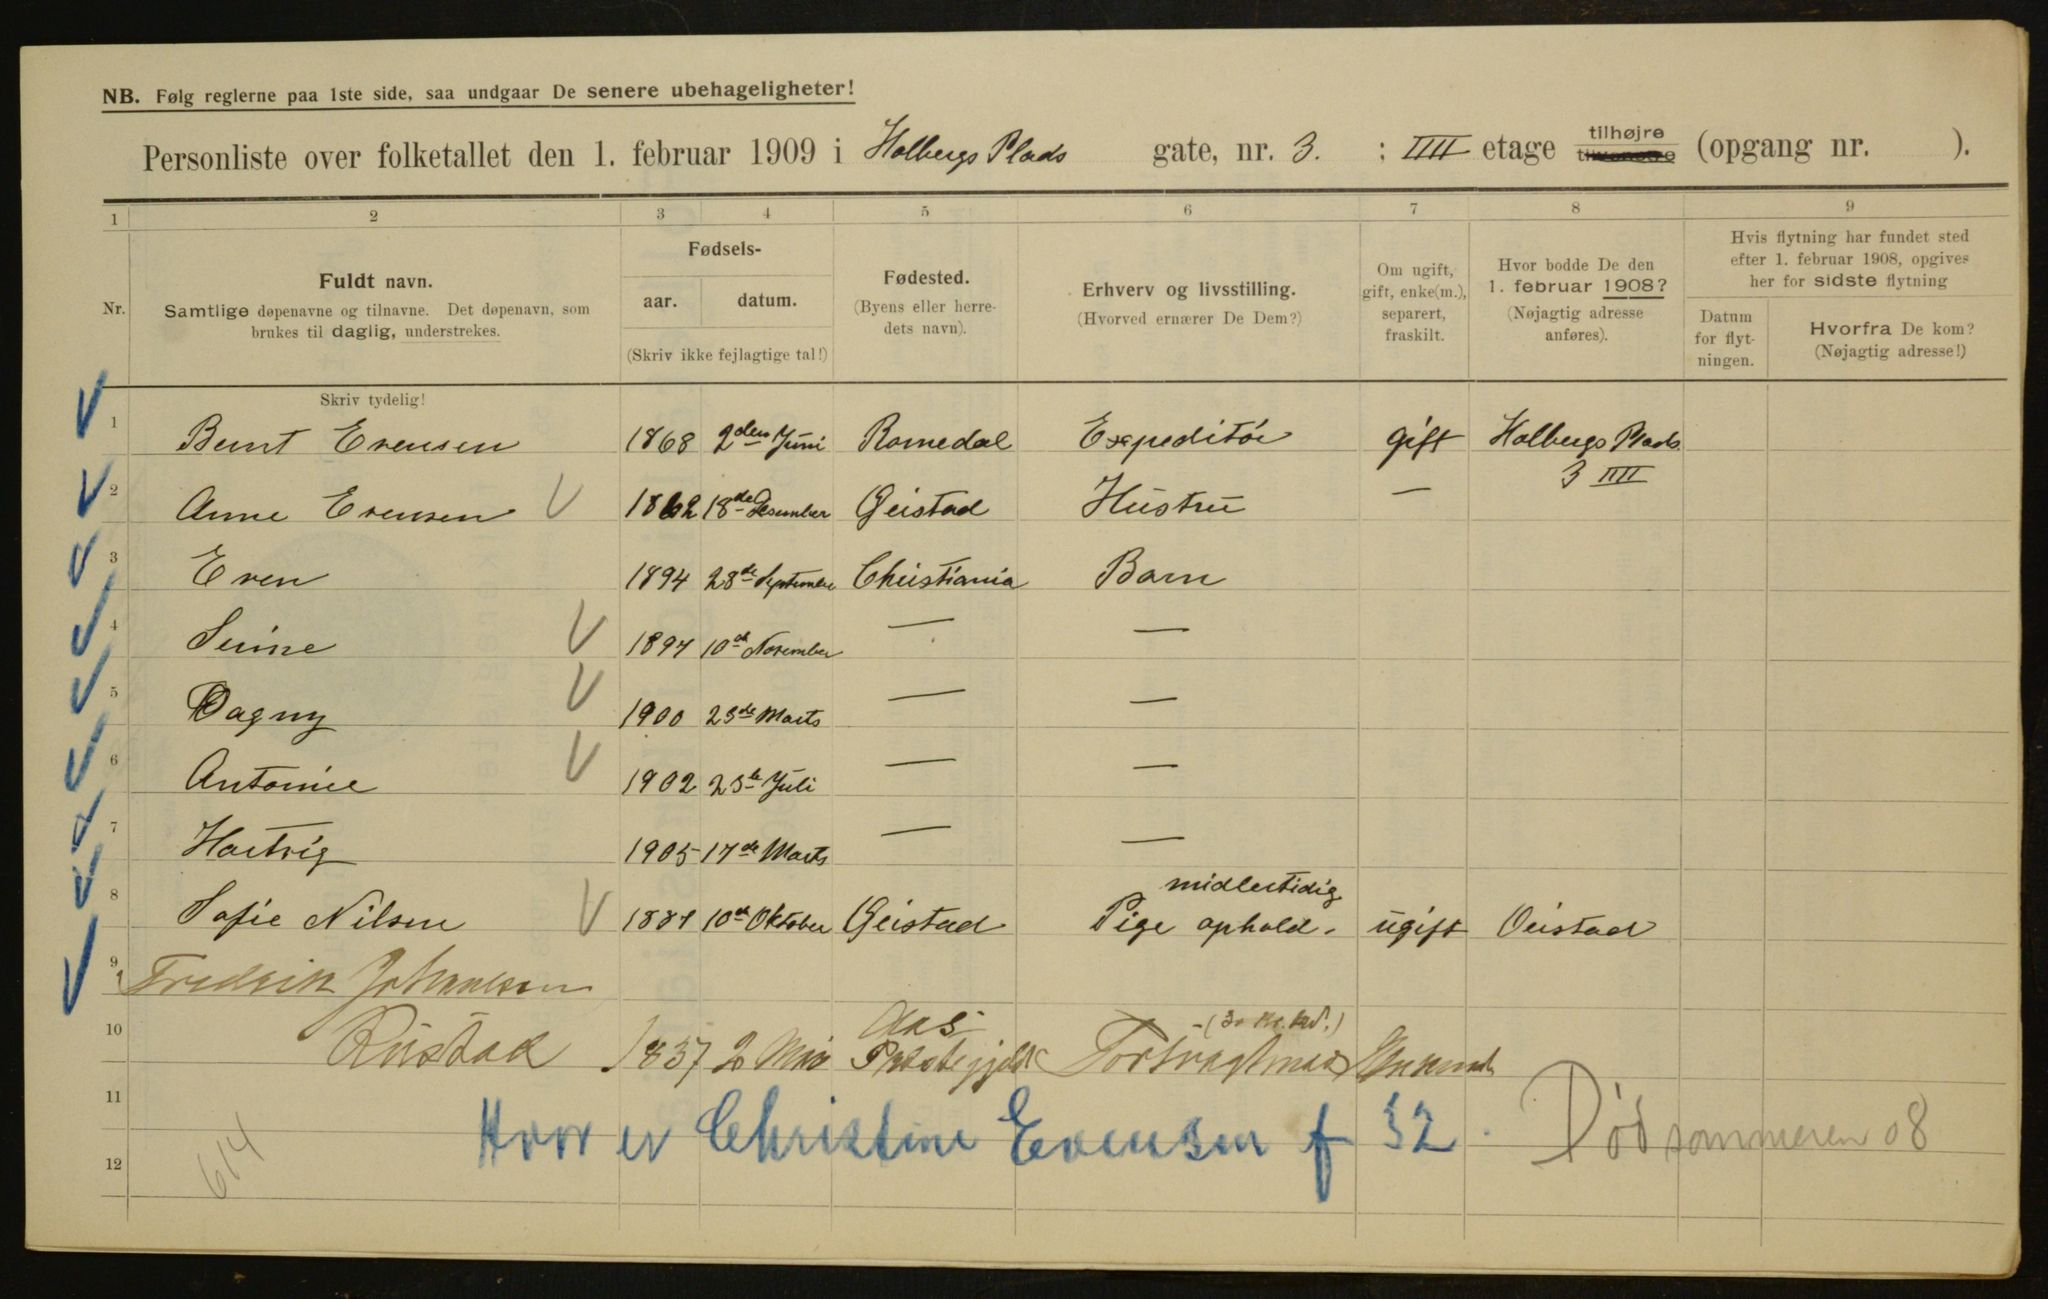 NB. Følg reglerne paa 1ste side, saa undgaar De senere ubehageligheter!
Personliste over folketallet den 1. februar 1909 i Holbergs Plads gate, nr. 3. ; IIII etage tilhøjre (opgang nr. ).
1 2 3 4 5 6 7 8 9
Nr.
Fuldt navn.
Samtlige døpenavne og tilnavne. Det døpenavn, som
brukes til daglig, understrekes.
Fødsels-
aar. datum.
(Skriv ikke fejlagtige tal!)
Fødested.
(Byens eller herre-
dets navn).
Erhverv og livsstilling.
(Hvorved ernærer De Dem?)
Om ugift,
gift, enke(m.),
separert,
fraskilt.
Hvor bodde De den
1. februar 1908?
(Nøjagtig adresse
anføres).
Hvis flytning har fundet sted
efter 1. februar 1908, opgives
her for sidste flytning
Datum
for flyt-
ningen.
Hvorfra De kom?
(Nøjagtig adresse!)
Skriv tydelig!
1 Bernt Evensen 1868 2den Juni Romedal Expeditør gift Holbergs Plads
3 IIII
2 Anne Evensen 1862 18de Desember Geistad Hustru —
3 Even 1894 28de September Christiania Barn
4 1897 10de November — —
5 Dagny 1900 23de Marts — —
6 Antonie 1902 23de Juli — —
7 Hartvig 1905 17de Marts — —
midlertidig
8 Sofie Nilsen 1887 10de Oktober Geistad Pige ophold. ugift Geistad
9 Fredrik Johansen
10 Rustad 1837 2 Aas Præstegjeld Enkemand
11
Hvor er Christine Evensen f 32. Død sommeren 08
12
614